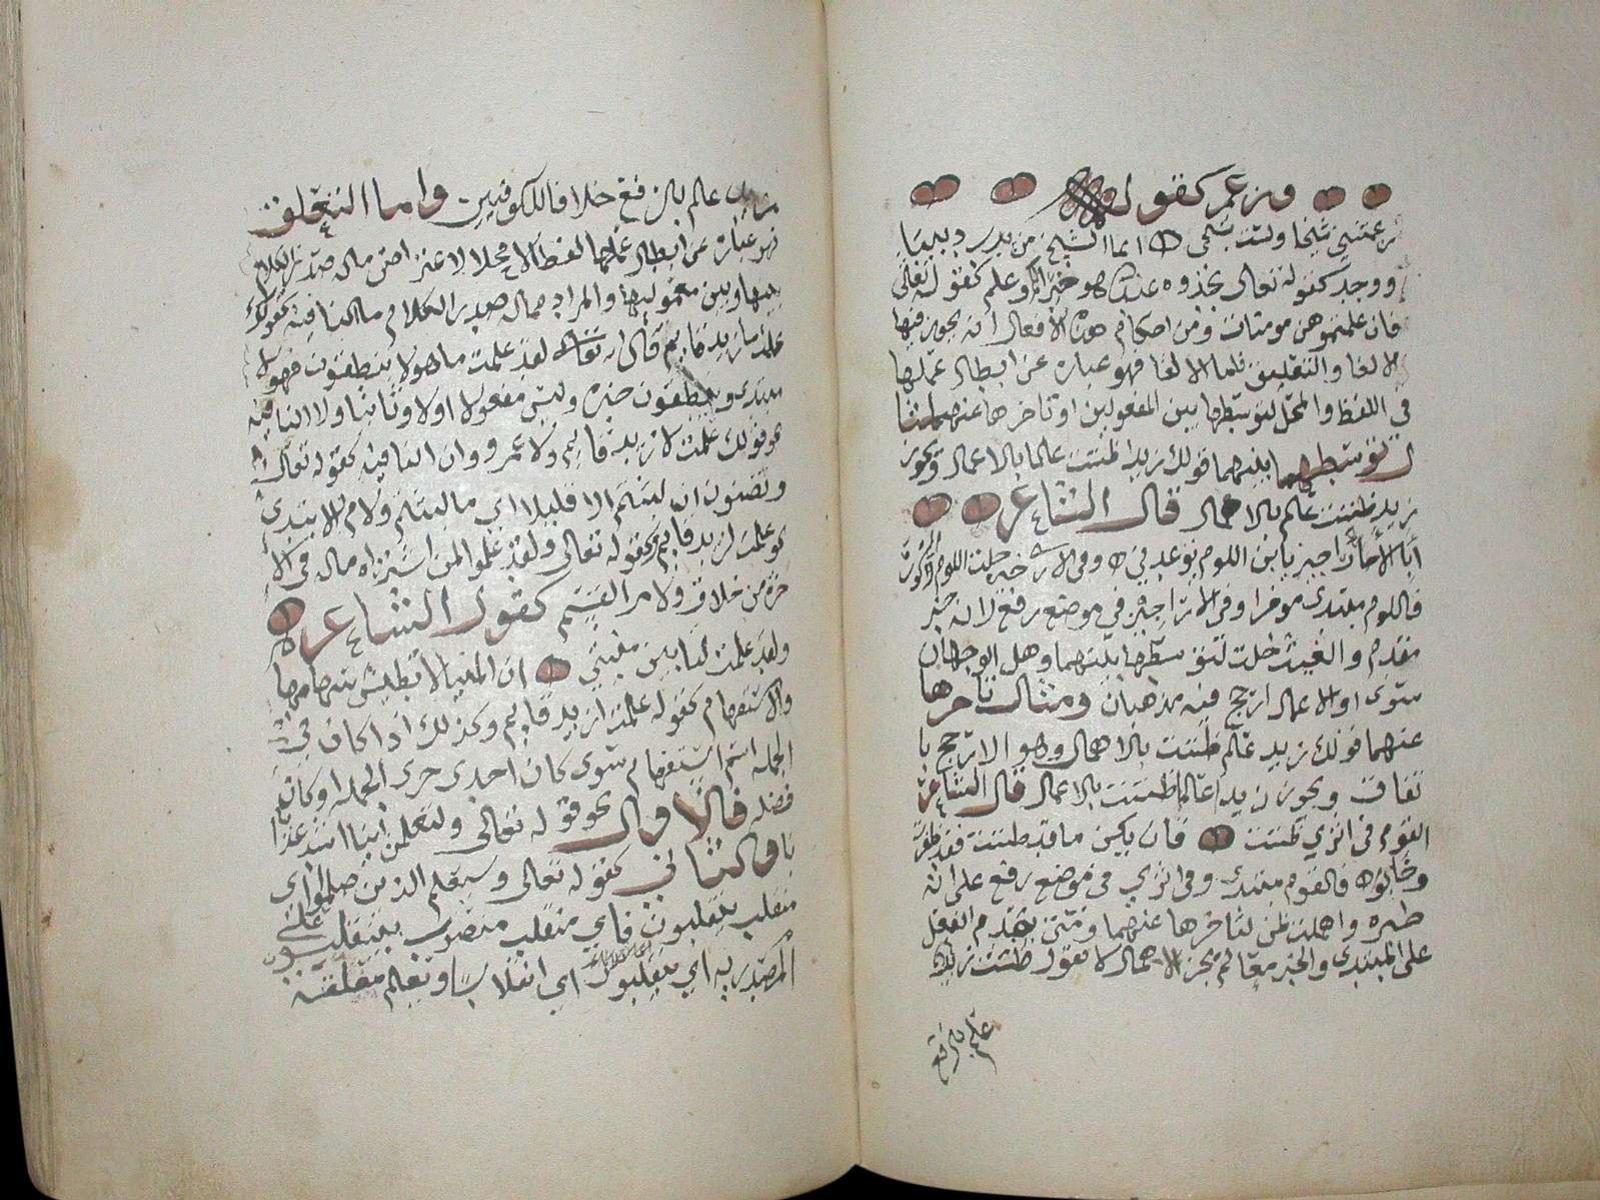 وزعم كقوله
زعمتني شيخا ولست بشيخ انما الشيخ من يدب دبيبا
ووجد كقوله تعالى تجدوه عند الله هو خيرا وعلم كقوله تعالى
فان علمتموهن مومنات ومن احكام هذه الافعال انه يجوز فيها
الالغا والتعليق فاما الالغا فهو عباره عن ابطال عملها
في اللفظ والمحل لتوسطها بين المفعولين او تاخرها عنهما مثا
ل توسطها بينهما قولك زيدا ظننت عالما بالاعمال ويجوز
زيد ظننت عالم بالاهمال قال الشاعر
ابالاراجيز يا بن اللوم توعدني وفي الاراجيز خلت اللوم والخور
فاللوم مبتدى موخرا وفي الاراجيز في موضع رفع لانه خبر
مقدم والغيت خلت لتوسطها بينهما وهل الوجهان
سوى او الاعمال ارجح فيه مذهبان ومثال تاخرها
عنهما قولك زيد عالم ظننت بالاهمال وهو الارجح با
تفاق ويجوز زيدا عالما ظننت بالاعمال قال الشاعر
القوم في اثري ظننت فان يكن ما قد ظننت فقد ظفرت
وخابوا فالقوم مبتدى وفي اثري في موضع رفع على انه
خبره واهملت ظن لتاخرها عنهما ومتى تقدم الفعل
على المبتدى والخبر معا لم يجز الاهمال لا تقول ظننت زيد
عالم بالرفع
عالم بالرفع خلافا للكوفيين واما التعليق
فهو عباره عن ابطال عملها لفظا لا محلا لاعتراض ماله صدر الكلام
بينها وبين معموليها والمراد بماله صدر الكلام ما النافيه كقولك
علمت ما زيد قايم قال الله تعالى لقد علمت ما هولا ينطقون فهولا
مبتدى وينطقون خبره وليس مفعولا اولا وثانيا ولا النافيه
نحو قولك علمت لا زيد قايم ولا عمرو وان النافيه كقوله تعالى
وتظنون ان لبثتم الا قليلا اي ما لبثتم ولام الابتدى
نحو علمت لزيد قايم وكقوله تعالى ولقد علموا لمن اشتراه ماله في الا
خرة من خلاق ولام القسم كقول الشاعر
ولقد علمت لتاتين منيتي ان المنايا لا تطيش سهامها
والاستفهام كقوله علمت ازيد قايم وكذلك اذا كان في
الجمله اسم استفهام سوى كان احدى جزى الجمله او كان
فضله فالاول نحو قوله تعالى ولتعلمن اينا اشد عذا
با والثاني كقوله تعالى وسيعلم الذين ظلموا اي
منقلب ينقلبون فاي منقلب منصوب بينقلبون على
المصدريه اي ينقلبون اي انقلاب ويعلم معلقة